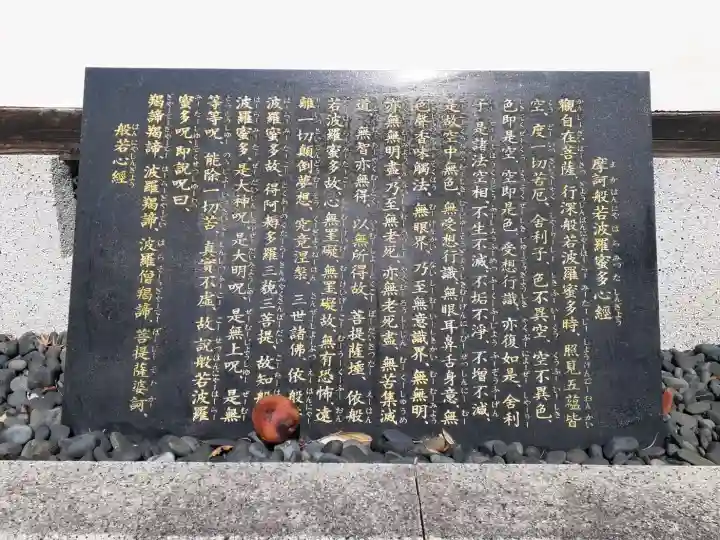 摩訶般若波羅蜜多心経
観自在菩薩、行深般若波羅蜜多時、照見五蘊皆
空、度一切苦厄、舍利子、色不異空、空不異色、
色即是空、空即是色、受想行識、亦復如是、舍利
子、是諸法空相、不生不滅、不垢不浄、不増不減、
是故空中無色、無受想行識、無眼耳鼻舌身意、無
色声香味触法、無眼界、乃至無意識界、無無明、
亦無無明盡、乃至無老死、亦無老死盡、無苦集滅
道、無智亦無得、以無所得故、菩提薩埵、依般
若波羅蜜多故、心無罣礙、無罣礙故、無有恐怖、遠
離一切顛倒夢想、究竟涅槃、三世諸佛、依般
波羅蜜多故、得阿耨多羅三藐三菩提、故知般
波羅蜜多、是大神呪、是大明呪、是無上呪、是無
等等呪、能除一切苦、真實不虚、故説般若波羅
蜜多呪、即説呪曰、
羯諦羯諦、波羅羯諦、波羅僧羯諦、菩提薩婆訶、
般若心経